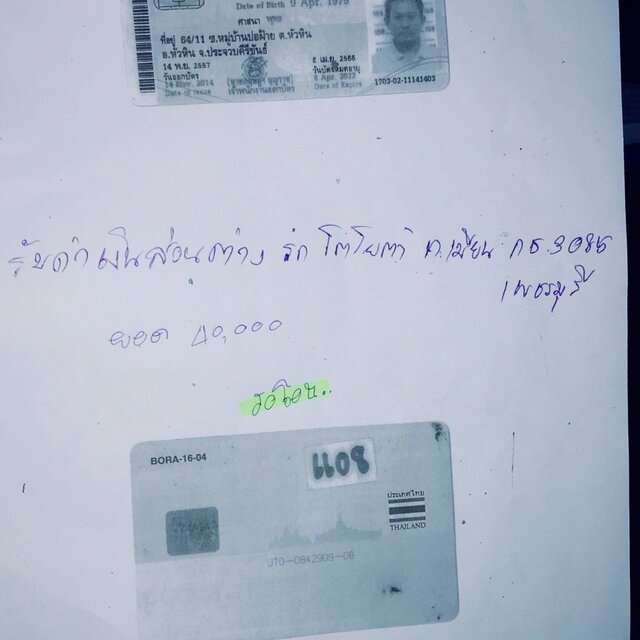 Date of Birth 9 Apr. 1976
ศาสนา พุทธ
ที่อยู่ 64/11 ซ.หมู่บ้านบ่อฝ้าย ต.หัวหิน
อ.หัวหิน จ.ประจวบคีรีขันธ์
14 พ.ย. 2557
วันออกบัตร
14 Nov. 2014
Date of Issue
เจ้าพนักงานออกบัตร
8 เม.ย. 2566
วันบัตรหมดอายุ
8 Apr. 2023
Date of Expiry
1703-02-11141403
รับค่าเงินส่วนต่าง รถ โตโยต้า ท.เบียน กธ.3085
เพชรบุรี
ยอด 40,000
BORA-16-04
1108
ประเทศไทย
THAILAND
JT0-0842909-08